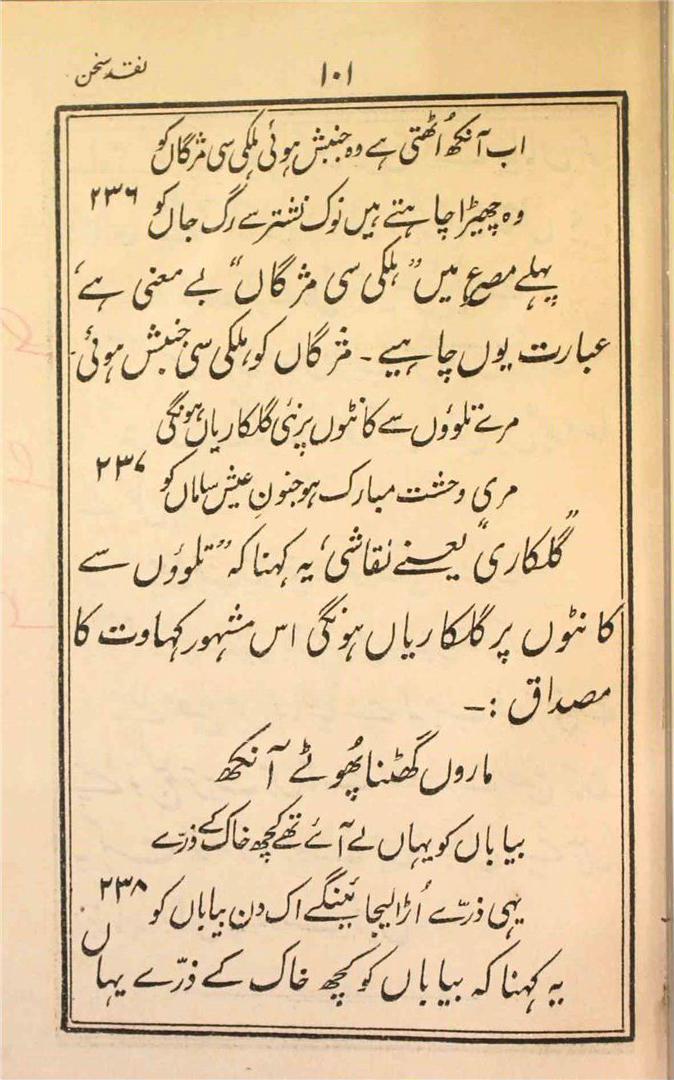 نقد سخن
۱۰۱
اب آنکھ اُٹھتی ہے وہ جنبش ہوئی ہلکی سی مژگاں کو
وہ چھیڑا چاہتے ہیں نوک نشتر سے رگ جاں کو ۲۳۶
پہلے مصرع میں ”ہلکی سی مژگاں“ بے معنی ہے‘
عبارت یوں چاہیے ۔ مژگاں کو ہلکی سی جنبش ہوئی۔
مرے تلووں سے کانٹوں پر نئی گلکاریاں ہونگی
مری وحشت مبارک ہو جنونِ عیش ساماں کو ۲۳۷
”گلکاری“ یعنے نقاشی‘ یہ کہنا کہ ”تلووں سے
کانٹوں پر گلکاریاں ہونگی اس مشہور کہاوت کا
مصداق :۔
ماروں گھٹنا پھُوٹے آنکھ
بیاباں کو یہاں لے آئے تھے کچھ خاک کے ذرّے
یہی ذرّے اُڑا لیجائینگے اک دن بیاباں کو ۲۳۸
یہ کہنا کہ بیاباں کو کچھ خاک کے ذرّے یہاں